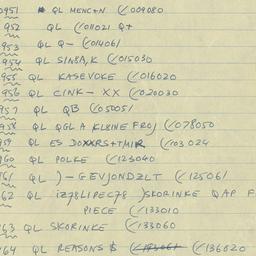 0951 * QL MENC+N (/009080
952 QL (/011021 Q+
953 QL Q- (/014061
954 QL SIN8A,K (/015030
955 QL KASEVOKE (/016020
956 QL CINK- XX (/020030
957 QL QB (/05051
958 QL QGL A KLBINE FROJ (/078050
959 QL ES DOXXRS+MIR (/103024
960 QL POLKE (/123040
961 QL )-GEVJONDZLT (/125061
962 QL IZ78LIPEC78 )SKORINKE QAP F
PIECE (/133010
963 QL SKORINKE (/133060
964 QL REASONS $ (/136020